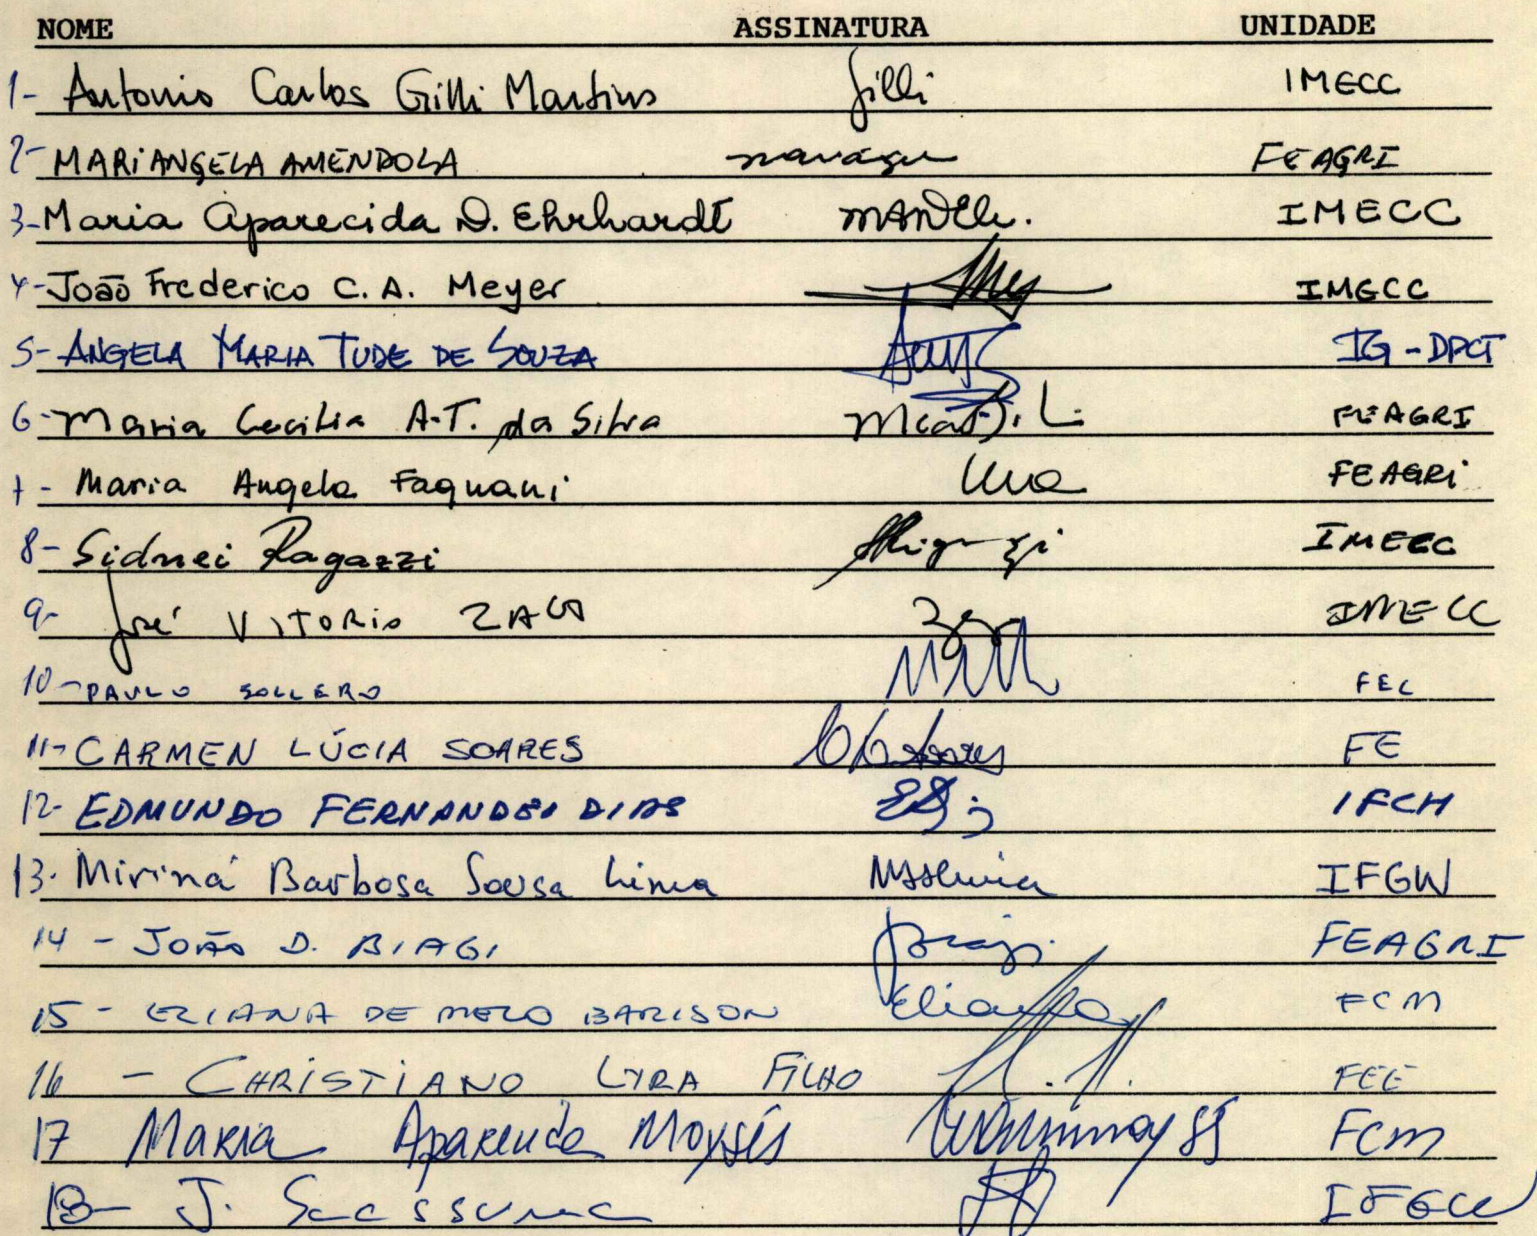 NOME ASSINATURA UNIDADE
1- Antonio Carlos Gilli Martins Gilli IMECC
2- MARIANGELA AMENDOLA FEAGRI
3- Maria Aparecida D. Ehrhardt IMECC
4- João Frederico C. A. Meyer IMECC
5- ANGELA MARIA TUDE DE SOUZA IG-DPCT
6- Maria Cecilia A.T. da Silva FEAGRI
7- Maria Angela Fagnani FEAGRI
8- Sidnei Ragazzi IMECC
9- José VITORIO ZAGO IMECC
10- PAULO SOLLERO FEC
11- CARMEN LÚCIA SOARES FE
12- EDMUNDO FERNANDES DIAS IFCH
13. Mirina Barbosa Sousa Lima IFGW
14 - JOÃO D. BIAGI FEAGRI
15 - ELIANA DE MELO BARISON FCM
16 - CHRISTIANO LYRA FILHO FEE
17 Maria Aparecida Moysés FCM
18- J. IFGW